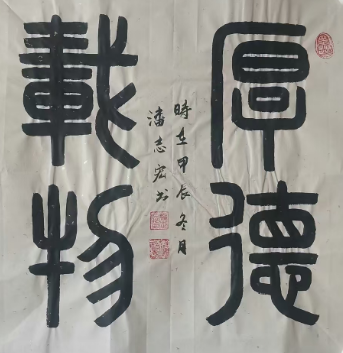 厚德
載物
時在甲辰冬月
潘志宏书